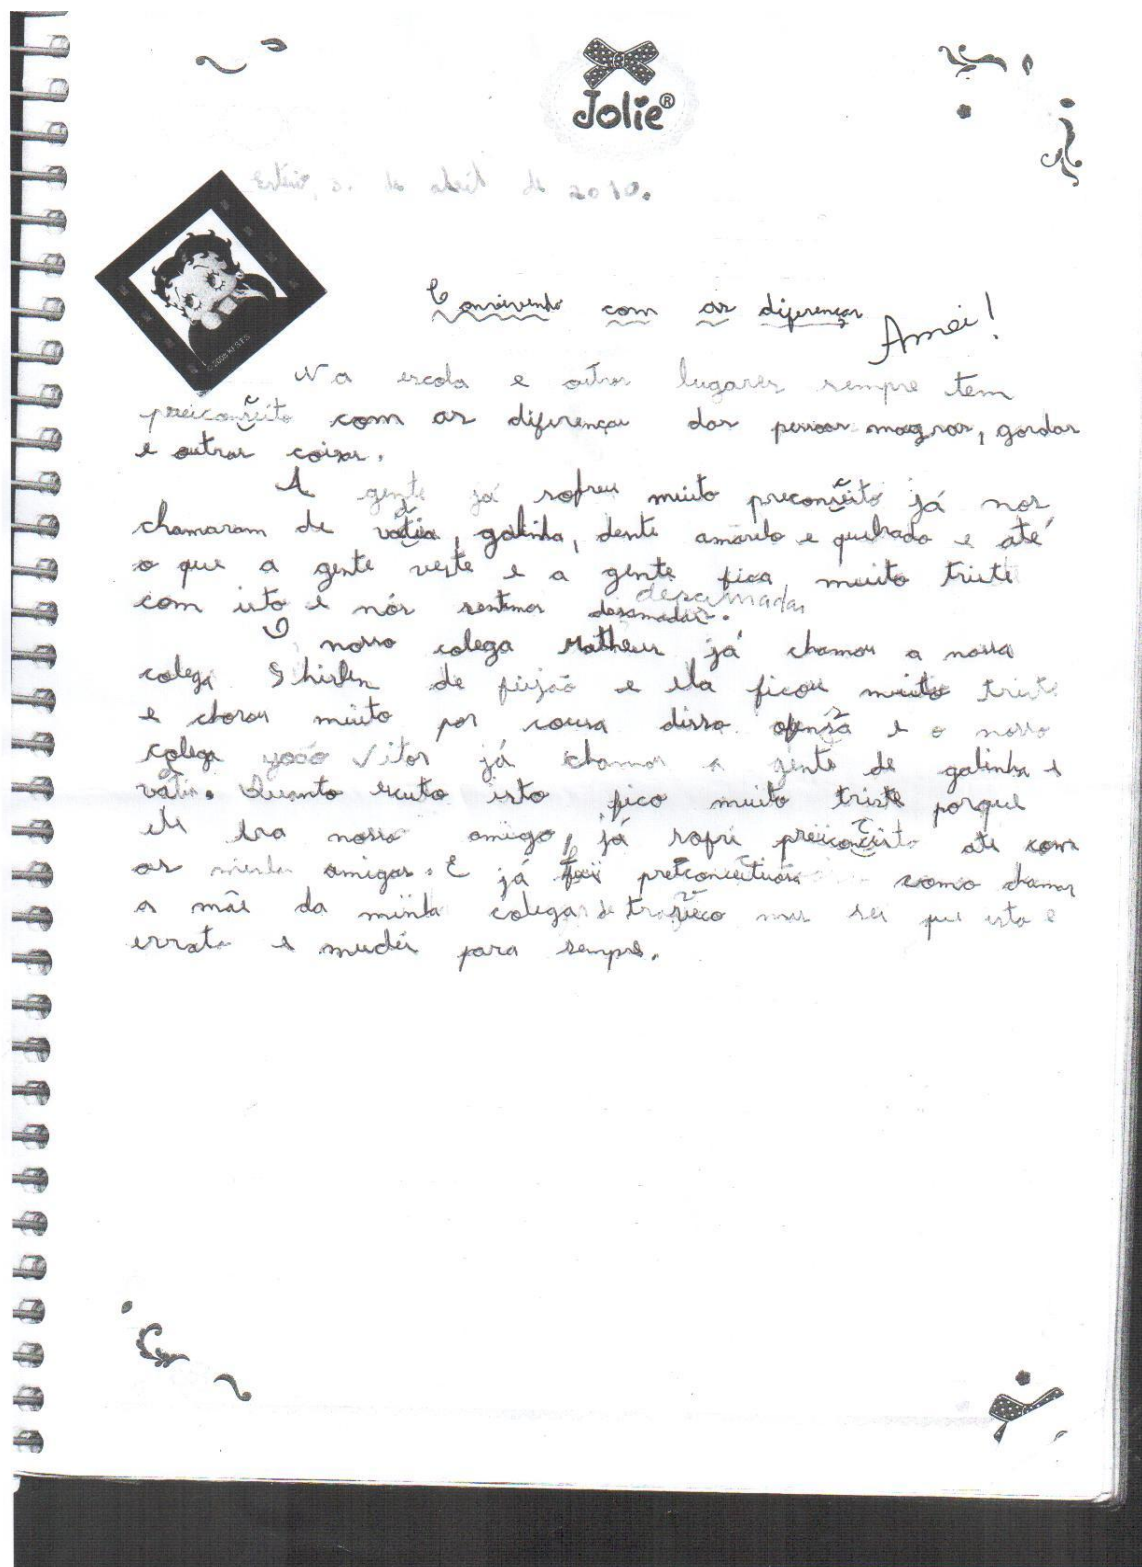 Jolie®
de abril de 2010.
© 2008 KFS/FS
Convivendo com as diferenças
Amei!
Na escola e outros lugares sempre tem
c
preiconseito com as diferenças das pessoas magras, gordas
e outras coisas.
c
A gente já sofreu muito preconseito já nos
chamaram de galinha, dente amarelo e quebrado e até
o que a gente veste e a gente fica muito triste
desanimadas
com isto e nós sentimos desamadas.
O nosso colega Matheus já chamou a nossa
colega Shirlen de feijão e ela ficou muito triste
e chorou muito por cousa disso ofensa e o nosso
colega yoão Vitor já chamou a gente de galinha e
Quanto escuto isto fico muito triste porque
ele era nosso amigo, já sofri até com
as minha amigas. E já fui como chamar
a mãe da minha colega de mas sei que isto e
errata e mudei para sempre.